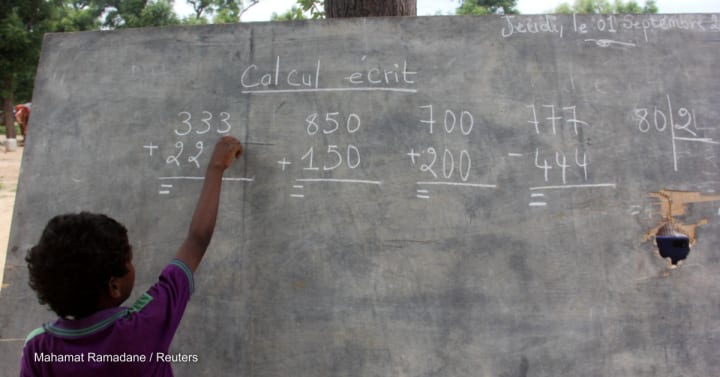 Jeudi, le 01 Septembre 2
Calcul écrit
333 850 700 777 80 2
+ 22 + 150 +200 - 444
= = = =
Mahamat Ramadane / Reuters